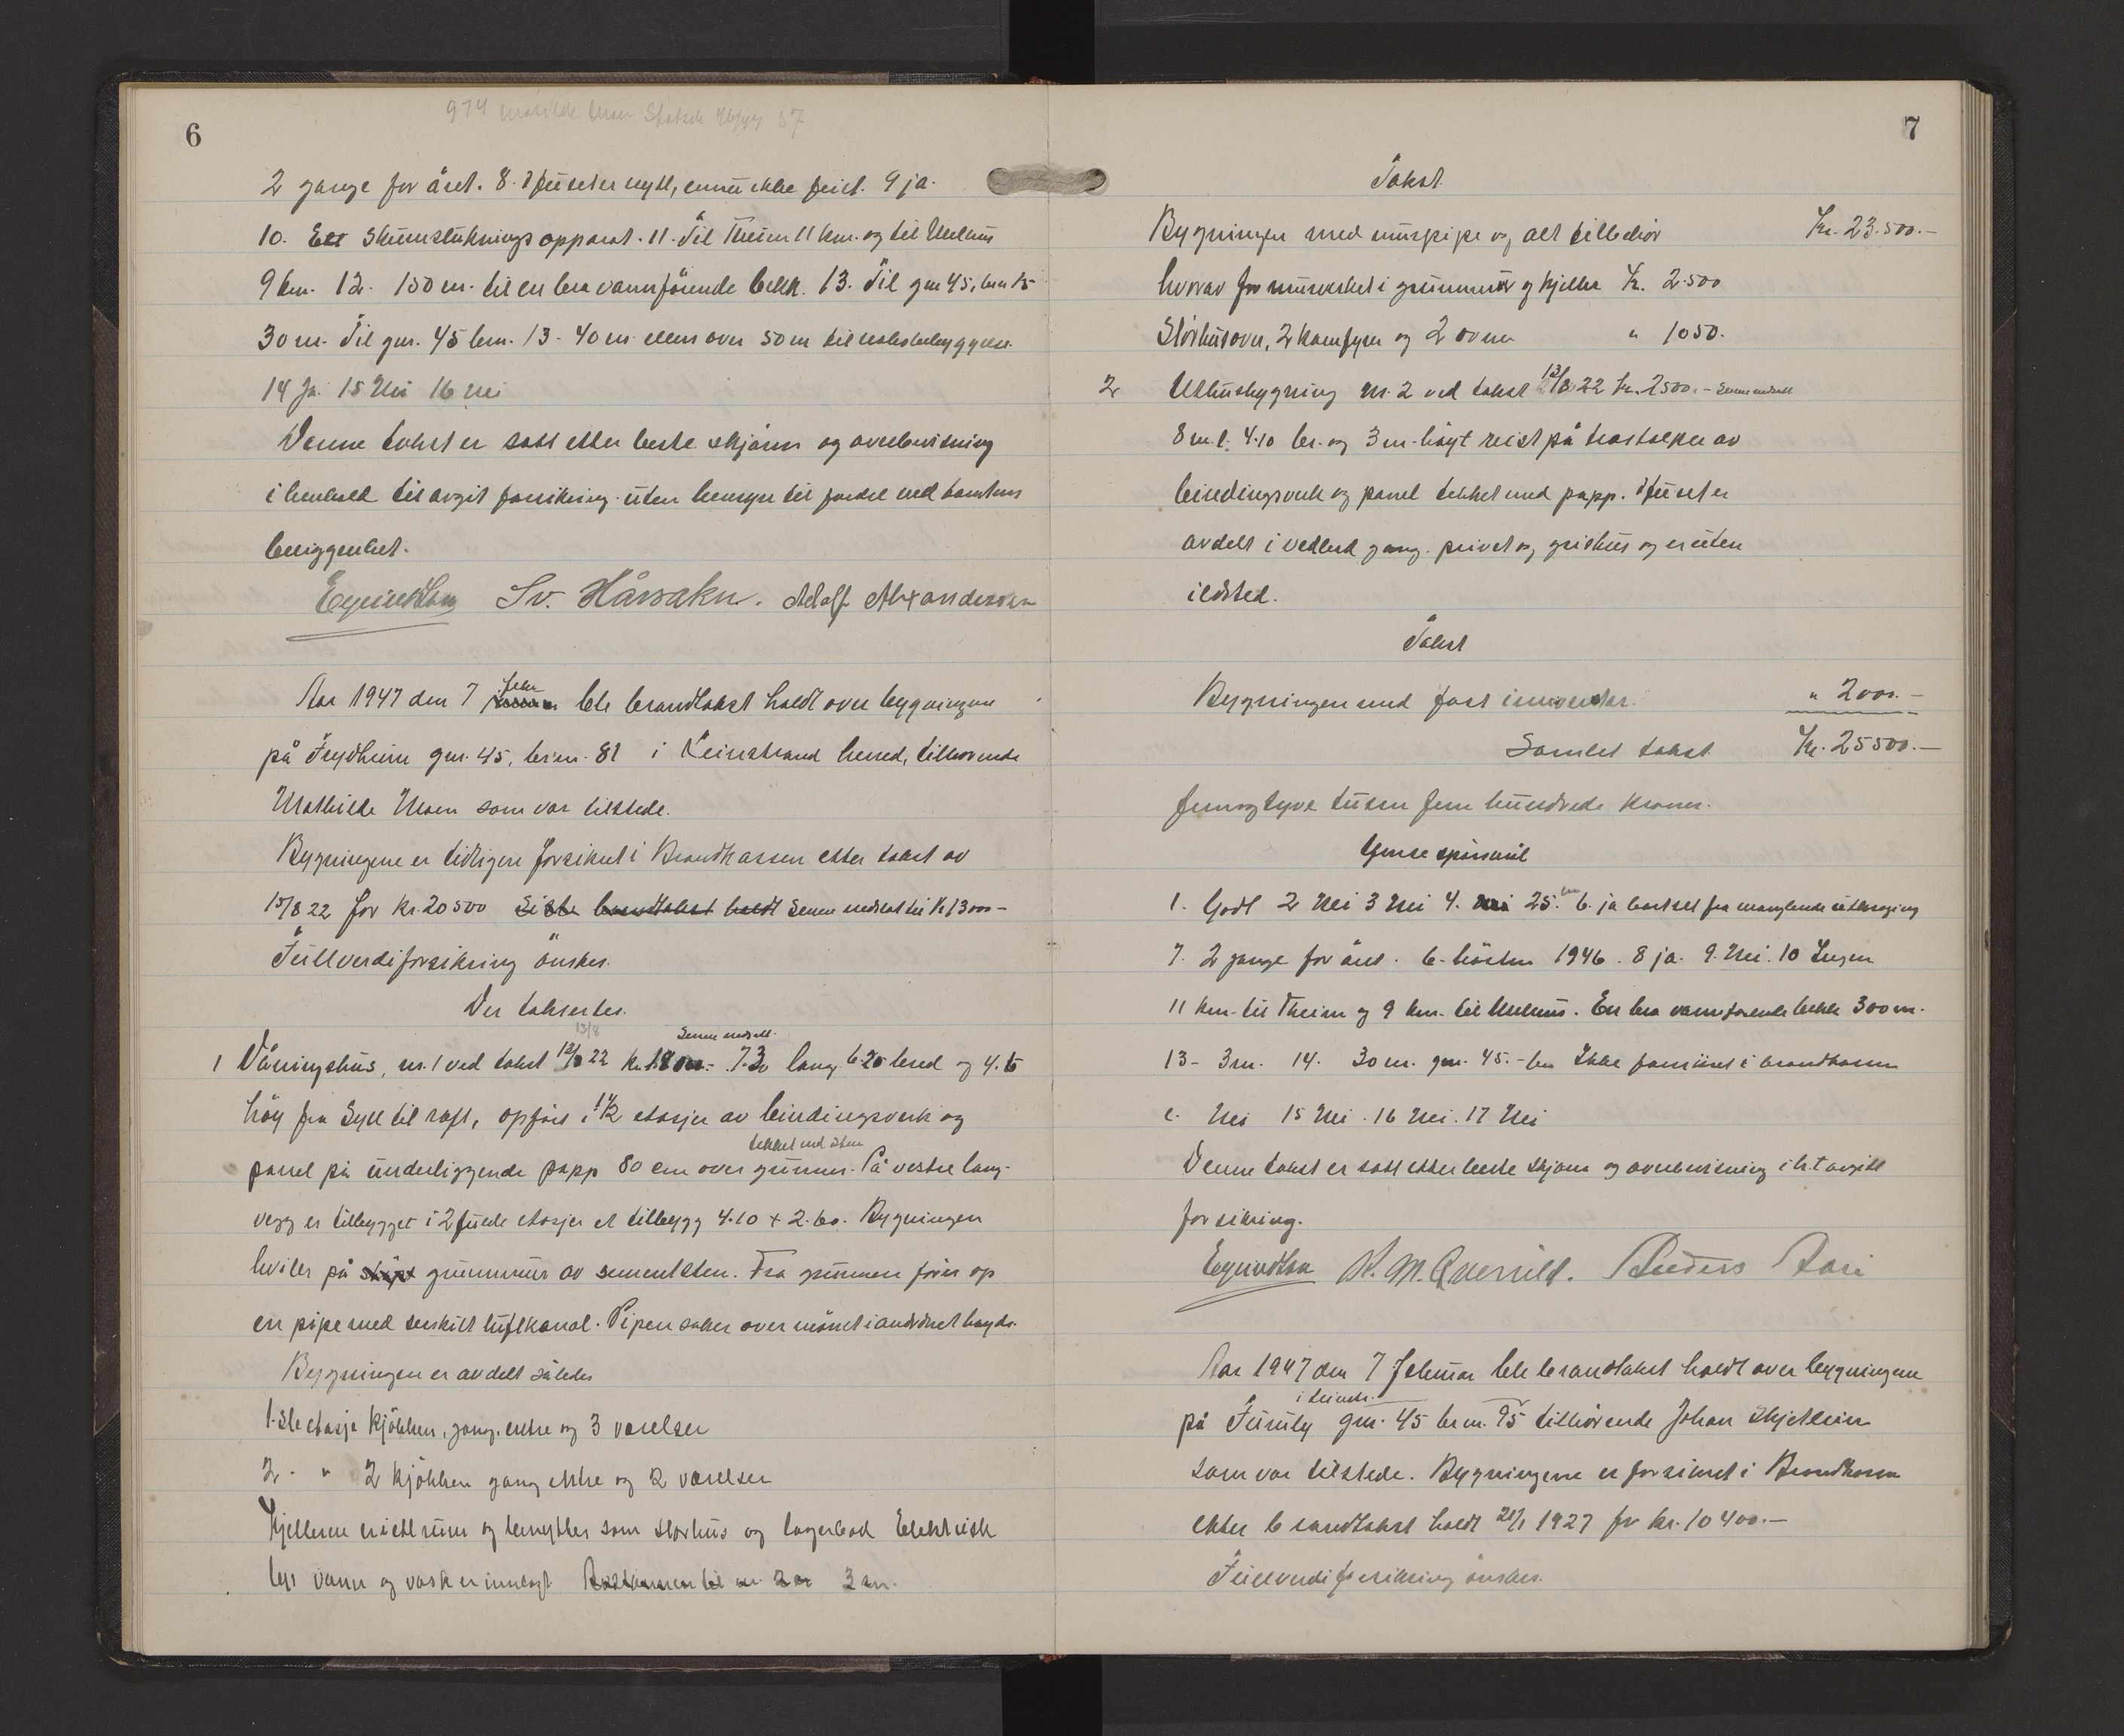 6
2 gange for året. 8. Huset er nytt, ennu ikke feiet. 9 ja.
10. Ett Skumslukningsapparat. 11. Til Theim 11 km. og til Melhus
9 km. 12. 150 m. til en bra vannførende bekk. 13. Til gnr 45, bnr 15
30 m. Til gnr. 45 bnr. 13 - 40 m ellers over 50 m til nabobebyggelse.
14 Ja 15 Nei 16 nei
Denne takst er satt etter beste skjønn og overbevisning
i henhold til avgit forsikring uten hensyn til fordel ved tomtens
beliggenhet.
Sv. Hårsaker. Adolf Alexandersen
Aar 1947 den 7 febr ble brandtakst holdt over bygningene
på Frydheim gnr. 45, br.nr. 81 i Leinstrand herred, tilhørende
Mathilde Moen som var tilstede.
Bygningene er tidligere forsikret i Brandkassen etter takst av
13/8 22 for kr. 20500 Siste brandtakst holdt senere nedsat til Kr 13000-
Fullverdiforsikring ønskes.
Der taksertes.
13/8
Senere nedsatt.
1 Våningshus, nr. 1 ved takst 13/8 22 kr. 18000.- 7.30 lang 6.20 bred og 4.15
høy fra Syll til raft, opført i 1 1/2 etasjer av bindingsverk og
tekket med sten
panel på underliggende papp 80 cm over grunnen. På vestre lang-
vegg er tilbygget i 2 fulde etasjer et tilbygg 4.10 + 2.60. Bygningen
hviler på støpt grunnmur av sementsten. Fra grunnen fører op
en pipe med særskilt luftkanal. Pipen stikker over mønet i anordnet høyde.
Bygningen er avdelt således
1.ste etasje kjøkken, gang, entre og 3 værelser
2. " 2 kjøkken gang entre og 2 værelser
Kjelleren er i ett rum og benyttes som størhus og lagerbod Elektrisk
lys vann og vask er innlagt
7
Takst
Bygningen med murpipe og alt tilbehør Kr. 23.500.-
hvorav for murverket i grunnmur og kjeller Kr. 2.500
Størhusovn, 2 komfyrer og 2 ovner " 1050.
2 Uthusbygning nr. 2 ved takst 13/8 22 kr. 2500.- senere nedsatt
8 m. l. 4.10 br. og 3 m. høyt reist på trestolper av
bindingsverk og panel tekket med papp. Huset er
avdelt i vedbod gang. privet og grishus og er uten
ildsted.
Takst
Bygningen med fast inventar. " 2000.-
Samlet takst. Kr. 25500.-
femogtyve tusen fem hundrede kroner.
Gense spørsmål
1. Godt 2 Nei 3 Nei 4. nei 25. 6. ja bortset fra manglende
7. 2 gange for året. 6. høsten 1946. 8 ja. 9. Nei. 10 Ingen
11 km. til Theim og 9 km. til Melhus. En bra vannførende bekk 300 m.
13 - 3 m. 14. 30 m. gnr. 45.- bnr Ikke forsikret i brandkassen
c. Nei 15 Nei. 16 Nei. 17 Nei
Denne takst er satt etter beste skjønn og overbevisning i h.t avgitt
forsikring.
K. M. Anders
Aar 1947 den 7 Februar ble brandtakst holdt over bygningene
i Leinstr.
på Furuly gnr. 45 br.nr. 95 tilhørende Johan Skjetlein
som var tilstede. Bygningene er forsikret i Brandkassen
etter brandtakst holdt 21/1 1927 for kr. 10400.-
Fullverdiforsikring ønskes.